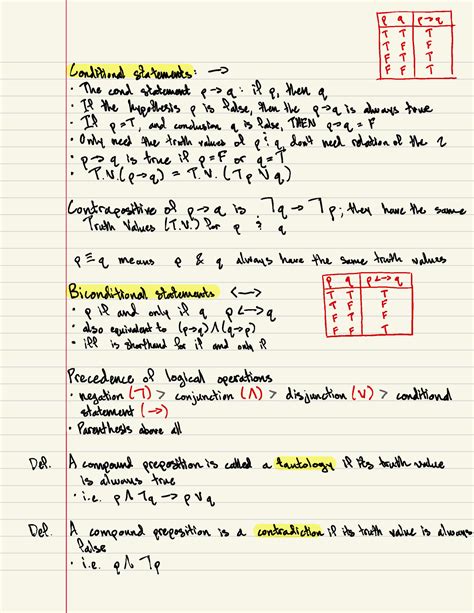 p q p→q
T T T
T F F
F T T
F F T
Conditional statements: →
• The cond statement p→q : if p, then q
• If the hypothesis p is false, then the p→q is always true
• If p=T, and conclusion q is false, THEN p→q = F
• Only need the truth values of p & q, don't need relation of the 2
• p→q is true if p=F or q=T
• T.V.(p→q) = T.V.(¬p ∨ q)
Contrapositive of p→q is ¬q → ¬p; they have the same
Truth Values (T.V.) for p & q
p ≡ q means p & q always have the same truth values
p q p↔q
T T T
T F F
F T F
F F T
Biconditional statements ↔
• p if and only if q p↔q
• also equivalent to (p→q)∧(q→p)
• iff is shorthand for if and only if
Precedence of logical operations
• negation (¬) > conjunction (∧) > disjunction (∨) > conditional
statement (→)
• Parenthesis above all
Def. A compound preposition is called a tautology if its truth value
is always true
• i.e. p∧¬q → p∨q
Def. A compound preposition is a contradiction if its truth value is always
false
• i.e. p∧¬p